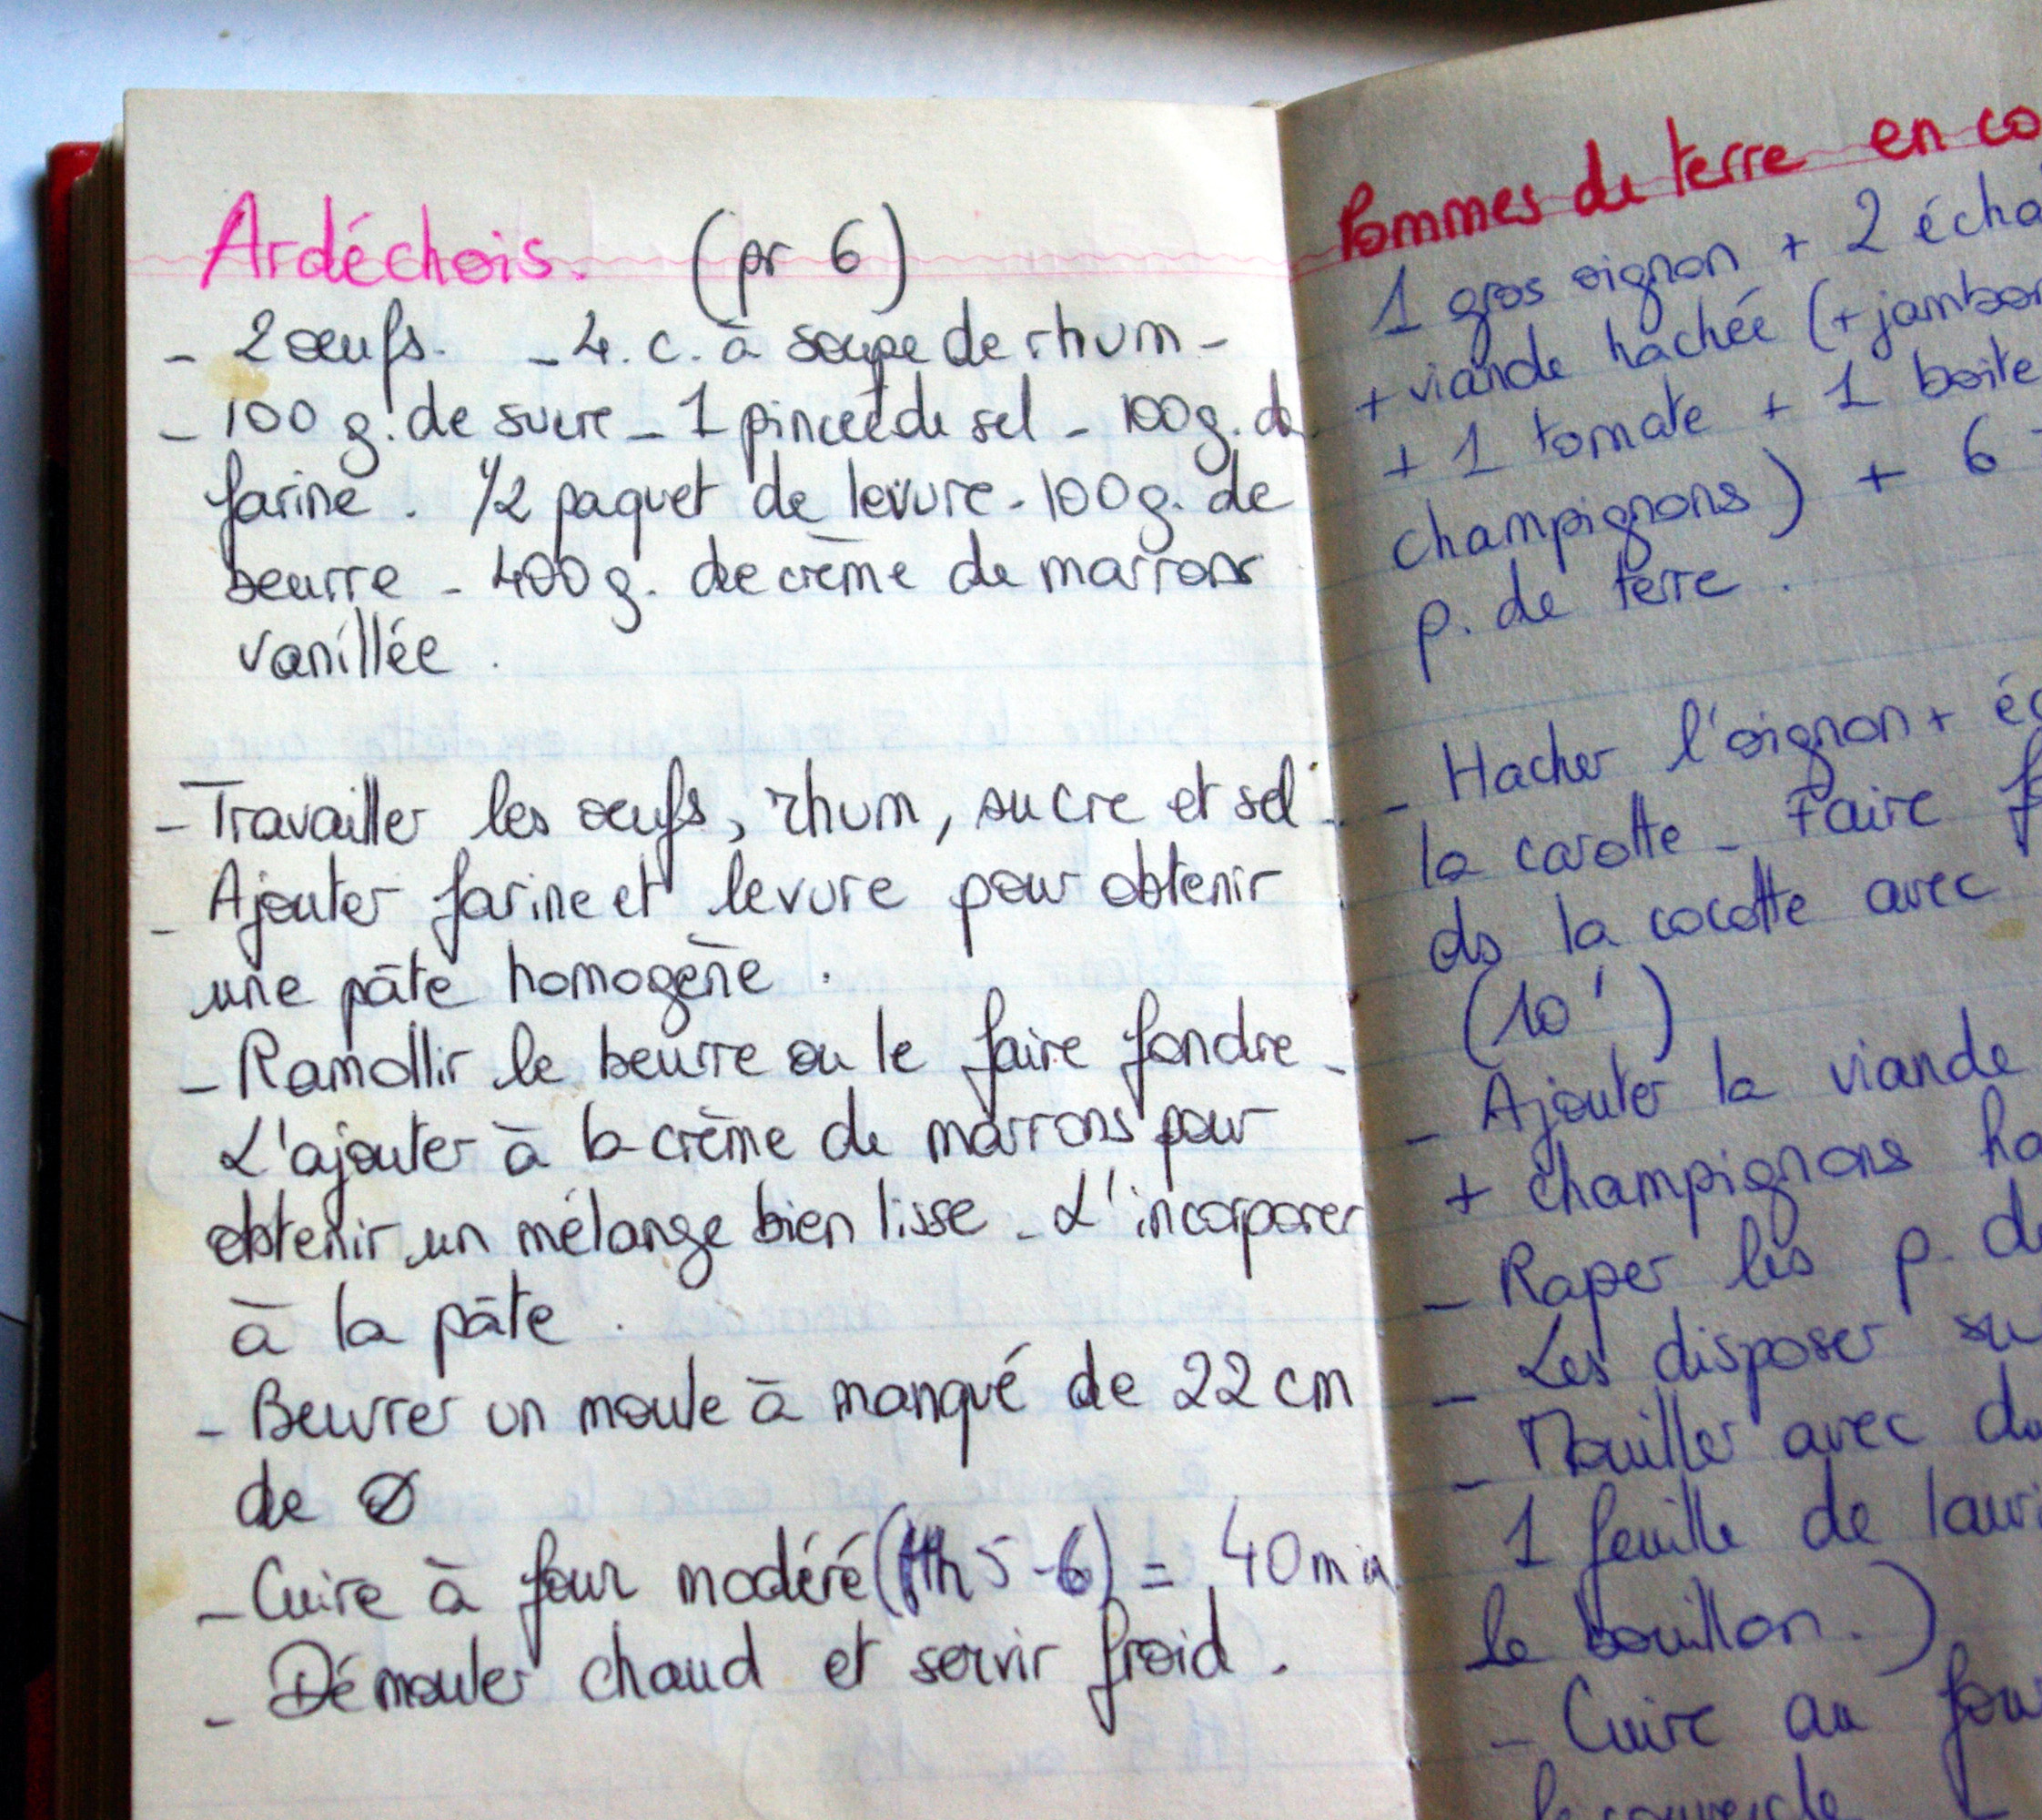 Ardéchois. (pr 6)
- 2 œufs. - 4. c. à soupe de rhum -
- 100 g. de sucre - 1 pincée de sel - 100 g. de
farine. 1/2 paquet de levure - 100 g. de
beurre - 400 g. de crème de marrons
vanillée.
- Travailler les œufs, rhum, sucre et sel.
- Ajouter farine et levure pour obtenir
une pâte homogène.
- Ramollir le beurre ou le faire fondre -
L'ajouter à la crème de marrons pour
obtenir un mélange bien lisse - L'incorporer
à la pâte.
- Beurrer un moule à manqué de 22 cm
de Ø
- Cuire à four modéré (th 5-6) = 40 min
- Démouler chaud et servir froid.
Pommes de terre en co
1 gros oignon + 2 écha
+ viande hachée (+ jambon
+ 1 tomate + 1 boite
champignons) + 6
p. de terre.
- Hacher l'oignon + éc
la carotte - Faire f
ds la cocotte avec
(10')
- Ajouter la viande
+ champignons ha
- Raper les p. d
- Les disposer su
- Mouiller avec du
1 feuille de laur
le bouillon.)
- Cuire au fou
le couvercle